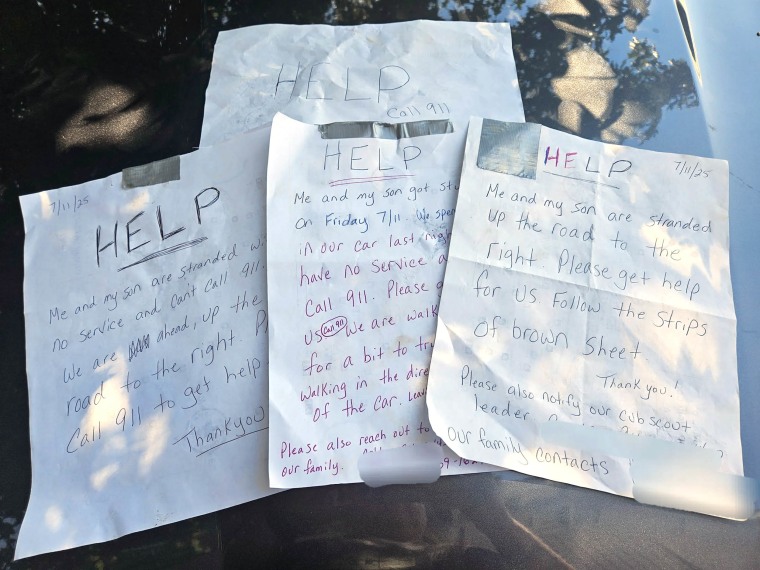 HELP
Call 911
7/11/25
HELP
Me and my son are stranded
no service and cant call 911.
We are ahead, up the
road to the right.
Call 911 to get help
Thankyou
HELP
Me and my son got
on Friday 7/11. We
in our car last
have no service
Call 911. Please
us Call 911 We are
for a bit to
walking in the
of the car.
Please also reach out to
our family.
HELP
7/11/25
Me and my son are stranded
up the road to the
right. Please get help
for us Follow the strips
of brown sheet.
Thank you!
Please also notify our cub scout
leader
our family contacts